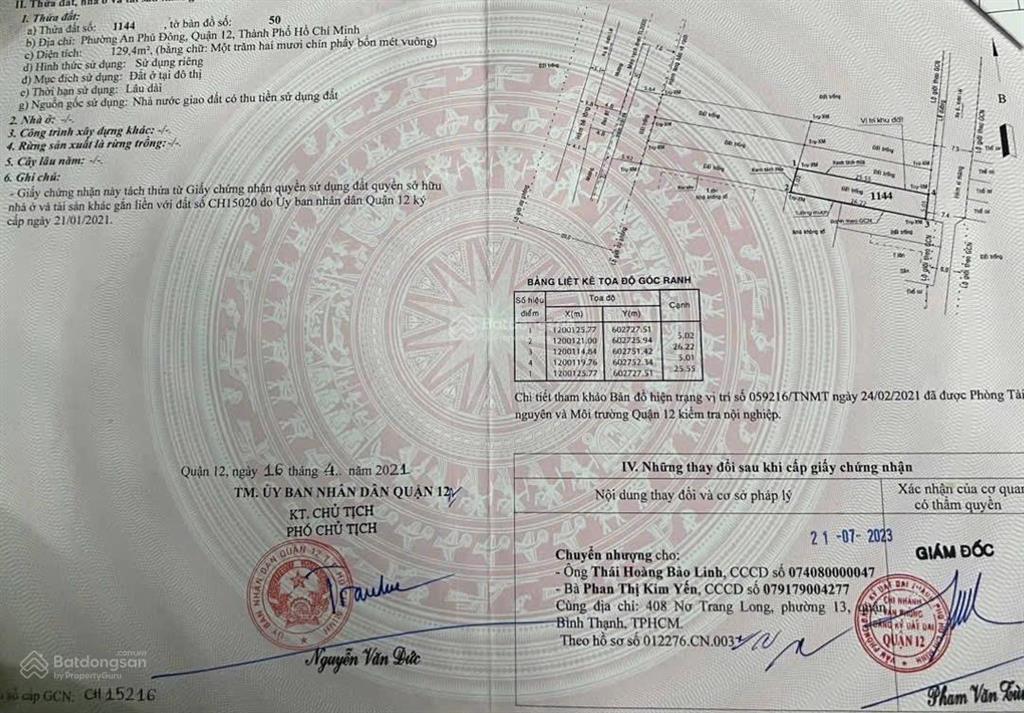 II. Thửa đất, nhà ở và tài sản
1. Thửa đất:
a) Thửa đất số: 1144 , tờ bản đồ số: 50
b) Địa chỉ: Phường An Phú Đông, Quận 12, Thành Phố Hồ Chí Minh
c) Diện tích: 129,4m², (bằng chữ: Một trăm hai mươi chín phẩy bốn mét vuông)
d) Hình thức sử dụng: Sử dụng riêng
đ) Mục đích sử dụng: Đất ở tại đô thị
e) Thời hạn sử dụng: Lâu dài
g) Nguồn gốc sử dụng: Nhà nước giao đất có thu tiền sử dụng đất
2. Nhà ở: -/-.
3. Công trình xây dựng khác: -/-.
4. Rừng sản xuất là rừng trồng: -/-.
5. Cây lâu năm: -/-.
6. Ghi chú:
- Giấy chứng nhận này tách thửa từ Giấy chứng nhận quyền sử dụng đất quyền sở hữu
nhà ở và tài sản khác gắn liền với đất số CH15020 do Ủy ban nhân dân Quận 12 ký
cấp ngày 21/01/2021.
B
Vị trí khu đất
Đất trống
1144
BẢNG LIỆT KÊ TỌA ĐỘ GÓC RANH
Số hiệu điểm Tọa độ Cạnh
X(m) Y(m)
1 1200125.77 602727.51
5.02
2 1200121.00 602725.94
26.22
3 1200114.84 602751.42
5.01
4 1200119.76 602752.34
25.55
1 1200125.77 602727.51
Chi tiết tham khảo Bản đồ hiện trạng vị trí số 059216/TNMT ngày 24/02/2021 đã được Phòng Tài
nguyên và Môi trường Quận 12 kiểm tra nội nghiệp.
Quận 12, ngày 16 tháng 4. năm 2021
TM. ỦY BAN NHÂN DÂN QUẬN 12
KT. CHỦ TỊCH
PHÓ CHỦ TỊCH
Nguyễn Văn Đức
số cấp GCN: CH15216
IV. Những thay đổi sau khi cấp giấy chứng nhận
Nội dung thay đổi và cơ sở pháp lý
Xác nhận của cơ quan
có thẩm quyền
21-07-2023
GIÁM ĐỐC
Chuyển nhượng cho:
- Ông Thái Hoàng Bảo Linh, CCCD số 074080000047
- Bà Phan Thị Kim Yến, CCCD số 079179004277
Cùng địa chỉ: 408 Nơ Trang Long, phường 13, quận
Bình Thạnh, TPHCM.
Theo hồ sơ số 012276.CN.003
CHI NHÁNH
VĂN PHÒNG
ĐĂNG KÝ ĐẤT ĐAI
QUẬN 12
Phạm Văn
Batdongsan
.com.vn
by PropertyGuru